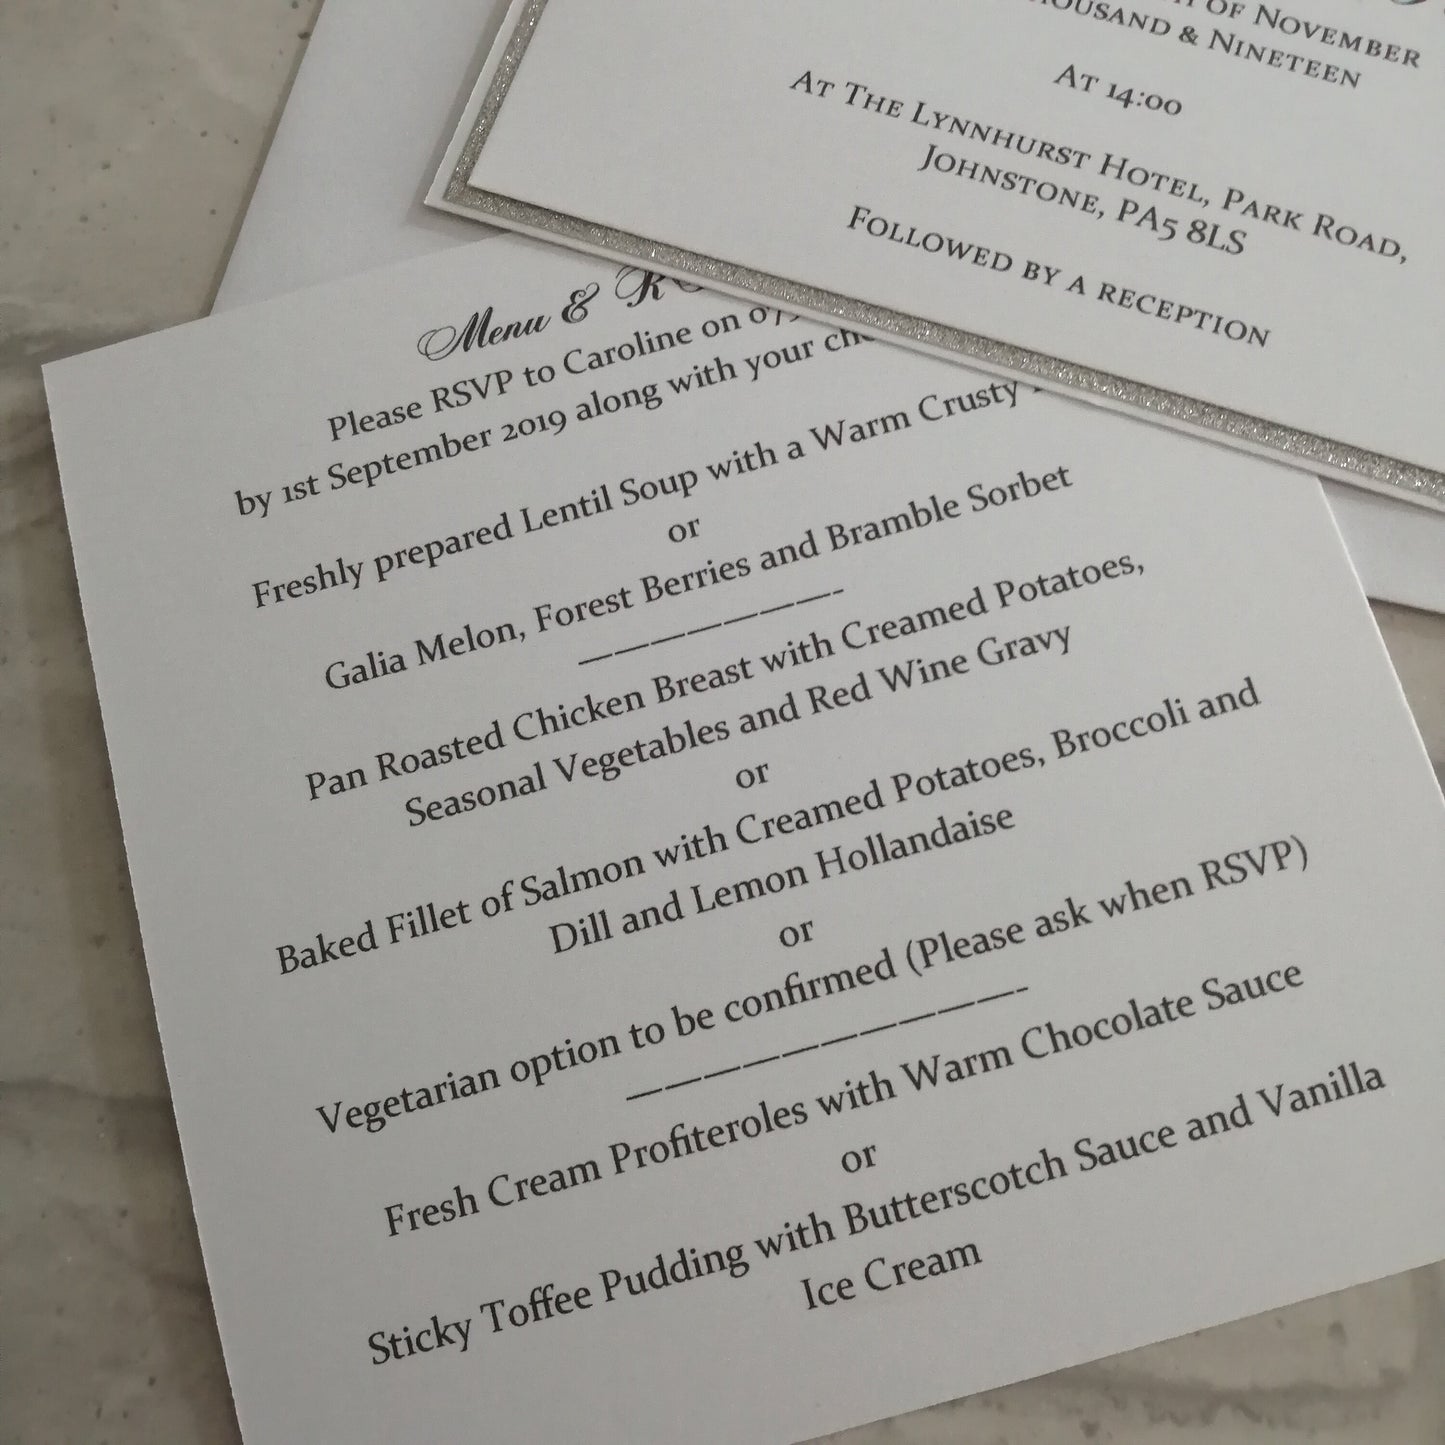 of November
& Nineteen
At 14:00
At The Lynnhurst Hotel, Park Road,
Johnstone, PA5 8LS
Followed by a reception
Menu &
Please RSVP to Caroline on
by 1st September 2019 along with your
Freshly prepared Lentil Soup with a Warm Crusty
or
Galia Melon, Forest Berries and Bramble Sorbet
———————-
Pan Roasted Chicken Breast with Creamed Potatoes,
Seasonal Vegetables and Red Wine Gravy
or
Baked Fillet of Salmon with Creamed Potatoes, Broccoli and
Dill and Lemon Hollandaise
or
Vegetarian option to be confirmed (Please ask when RSVP)
——————————-
Fresh Cream Profiteroles with Warm Chocolate Sauce
or
Sticky Toffee Pudding with Butterscotch Sauce and Vanilla
Ice Cream